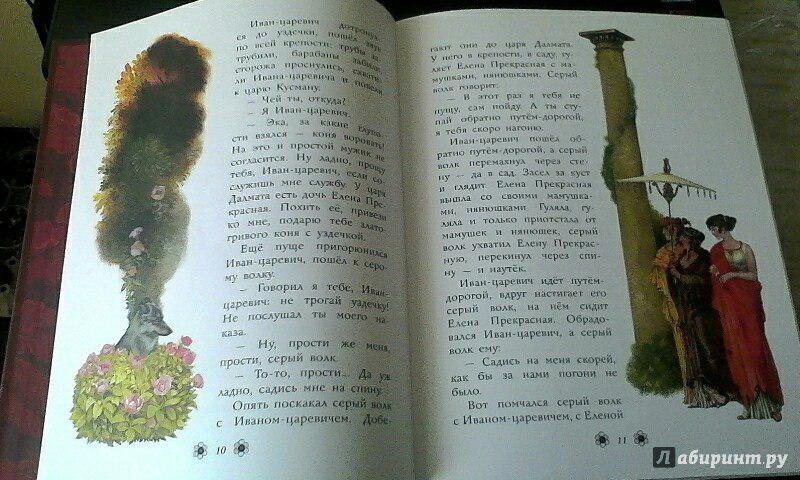 Иван-царевич дотронул-
ся до уздечки, пошёл звук
по всей крепости: трубы за-
трубили, барабаны забили,
сторожа проснулись, схвати-
ли Ивана-царевича и повели
к царю Кусману.
— Чей ты, откуда?
— Я Иван-царевич.
— Эка, за какие глупо-
сти взялся — коня воровать!
На это и простой мужик не
согласится. Ну ладно, прощу
тебя, Иван-царевич, если со-
служишь мне службу. У царя
Далмата есть дочь Елена Пре-
красная. Похить её, привези
ко мне, подарю тебе злато-
гривого коня с уздечкой.
Ещё пуще пригорюнился
Иван-царевич, пошёл к серо-
му волку.
— Говорил я тебе, Иван-
царевич: не трогай уздечку!
Не послушал ты моего на-
каза.
— Ну, прости же меня,
прости, серый волк.
— То-то, прости... Да уж
ладно, садись мне на спину.
Опять поскакал серый волк
с Иваном-царевичем. Добе-
10
гают они до царя Далмата.
У него в крепости, в саду, гу-
ляет Елена Прекрасная с ма-
мушками, нянюшками. Серый
волк говорит:
— В этот раз я тебя не
пущу, сам пойду. А ты сту-
пай обратно путём-дорогой,
я тебя скоро нагоню.
Иван-царевич пошёл об-
ратно путём-дорогой, а серый
волк перемахнул через сте-
ну — да в сад. Засел за куст
и глядит. Елена Прекрасная
вышла со своими мамушка-
ми, нянюшками. Гуляла, гу-
ляла и только приотстала от
мамушек и нянюшек, серый
волк ухватил Елену Прекрас-
ную, перекинул через спи-
ну — и наутёк.
Иван-царевич идёт путём-
дорогой, вдруг настигает его
серый волк, на нём сидит
Елена Прекрасная. Обрадо-
вался Иван-царевич, а серый
волк ему:
— Садись на меня скорей,
как бы за нами погони не
было.
Вот помчался серый волк
с Иваном-царевичем, с Еленой
11
Лабиринт.ру